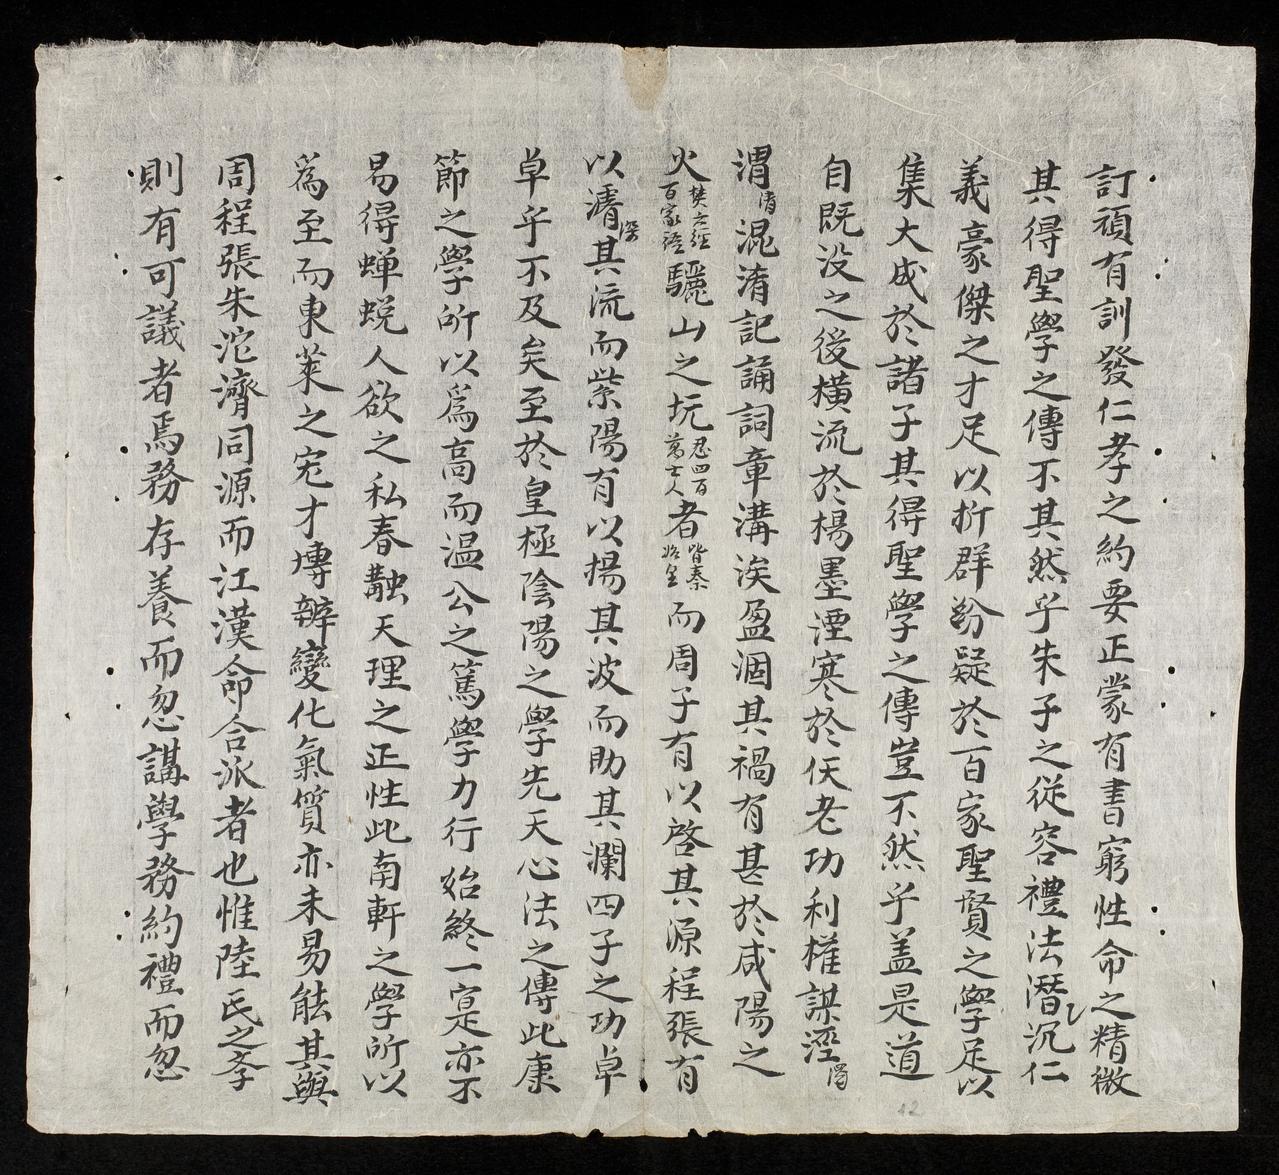 訂頑有訓發仁孝之約要正蒙有書窮性命之精微
其得聖學之傳不其然乎朱子之從容禮法潛沉仁
義豪傑之才足以折群紛疑於百家聖賢之學足以
集大成於諸子其得聖學之傳豈不然乎盖是道
自既没之後橫流於楊墨湮塞於仸老功利權謀涇濁
渭清混淆記誦詞章溝涘盈涸其禍有甚於咸陽之
火焚六經百家語驪山之坑忍四百萬士人者皆秦始皇而周子有以啓其源程張有
以濬深其流而紫陽有以揚其波而助其瀾四子之功卓
卓乎不及矣至於皇極陰陽之學先天心法之傳此康
節之學所以爲高而温公之篤學力行始終一寔亦不
易得蝉蜕人欲之私春融天理之正性此南軒之學所以
為至而東萊之宏才博辨變化氣質亦未易能其與
周程張朱沱濟同源而江漢命合派者也惟陸氏之孝
則有可議者焉務存養而忽講學務約禮而忽
12